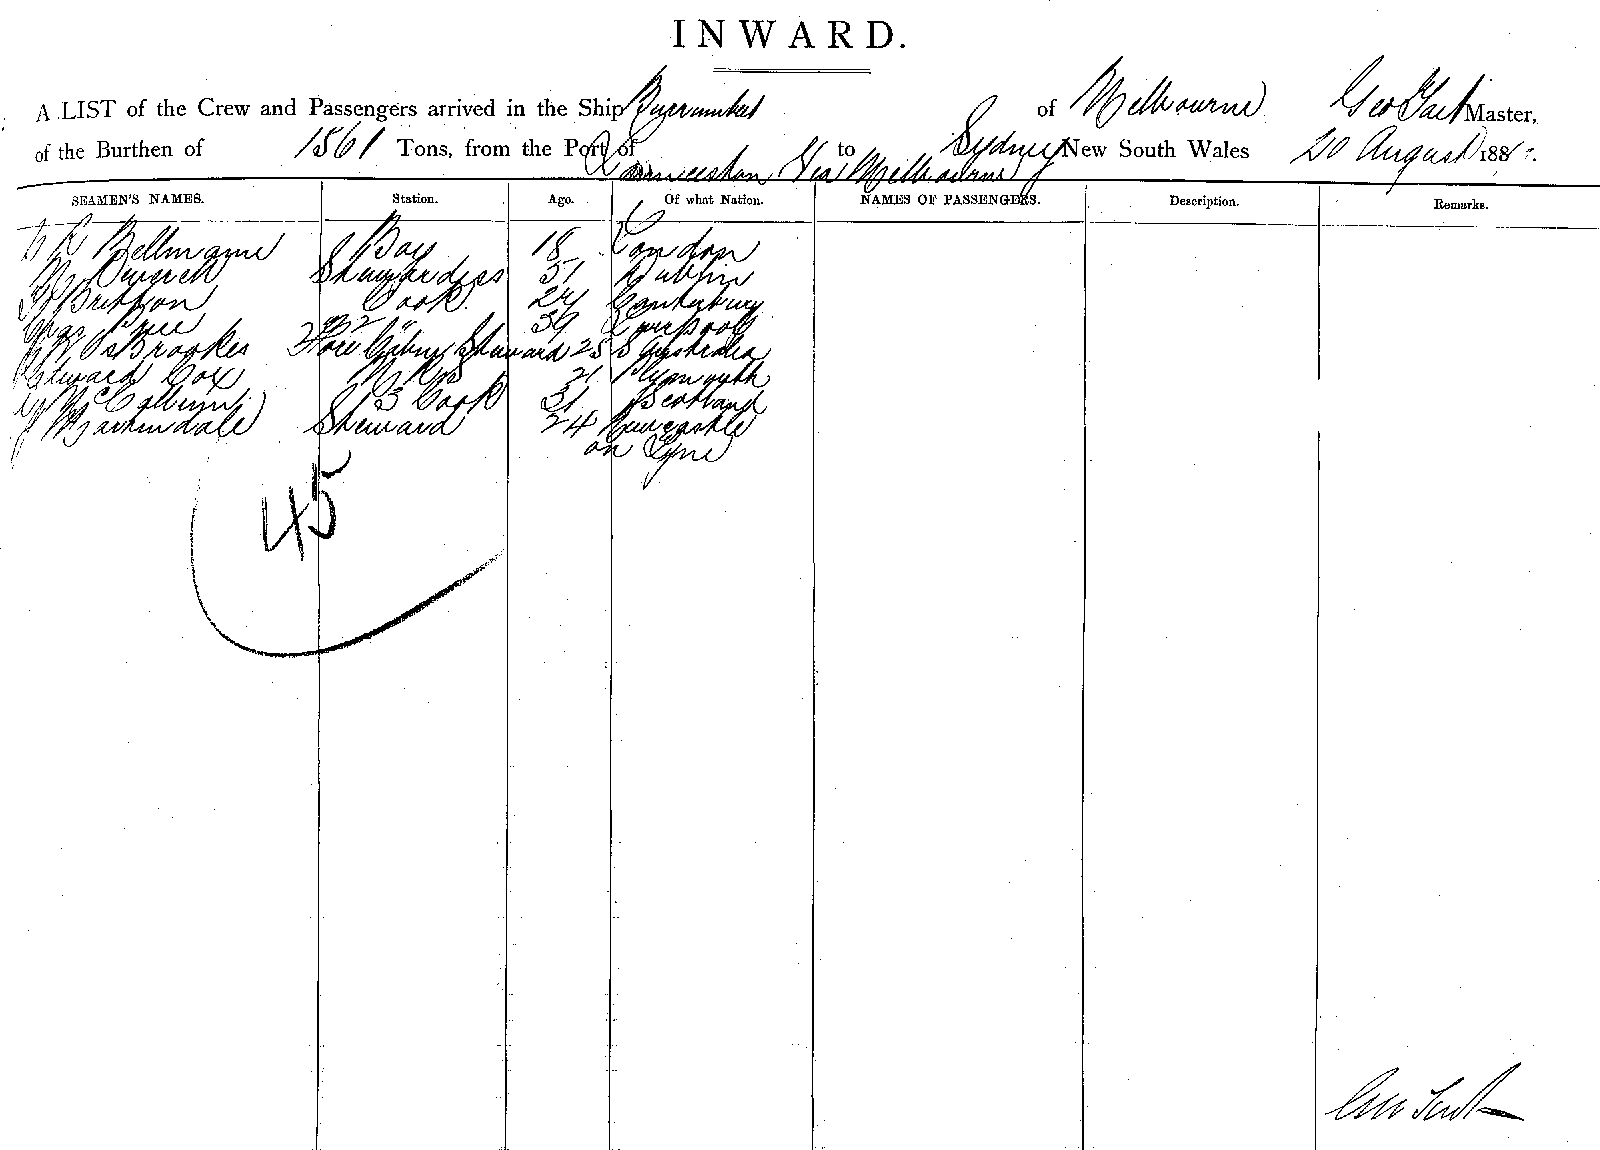 INWARD.
A LIST of the Crew and Passengers arrived in the Ship Burrumbeet of Melbourne Geo Tait Master,
of the Burthen of 1561 Tons, from the Port of Launceston Via Melbourne to Sydney New South Wales 20 August 188
SEAMEN'S NAMES. Station. Age. Of what Nation. NAMES OF PASSENGERS. Description. Remarks.
Bellmaine Boy 18 London
Stewardess 51 Dublin
Britton Cook 24 Canterbury
Chas Price 2 " 39 Liverpool
Brookes Fore Cabin Steward 25 S Australia
Edward Cox 21 Plymouth
McCallum 3 Cook 31 Scotland
J Martindale Steward 24 Newcastle
on Tyne
45